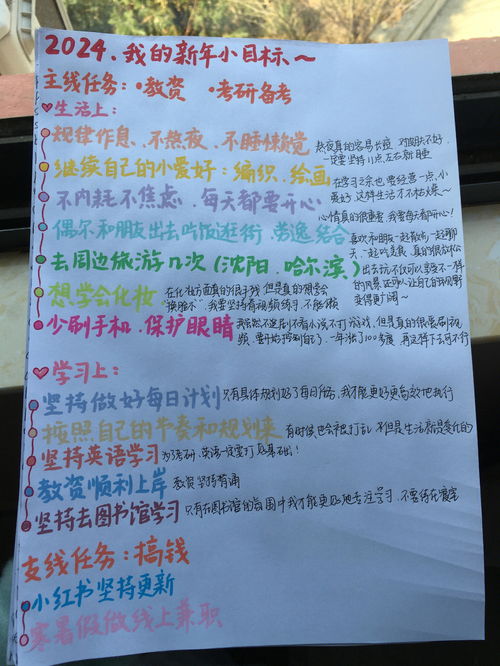 2024.我的新年小目标~
主线任务:·教资 ·考研备考
生活上:
规律作息、不熬夜、不睡懒觉
熬夜真的容易长痘,对眼睛不好,
一定要坚持11点左右就睡
继续自己的小爱好:编织、绘画
在学习之余也要经营一点小
爱好,这样生活才不枯燥~
不内耗不焦虑,每天都要开心
心情真的很重要,我要每天都开心!
偶尔和朋友出去吃饭逛街,劳逸结合
喜欢和朋友一起散步,一起聊
天,一起吃美食,真的很放松
去周边旅游几次(沈阳、哈尔滨)
出去玩不仅可以享受不一样
的风景,还可以让自己的视野
变得更广阔~
想学会化妆
在化妆方面真的很手残,但是真的想学会
"换脸术",我要坚持看视频练习,不能懒
少刷手机,保护眼睛
我虽然不追剧不看小说不打游戏,但是真的很爱刷视
频,要开始控制自己了,一年涨了100多度,再这样下去可不行
学习上:
坚持做好每日计划
只有具体规划好了每日任务,我才能更好更高效地执行
按照自己的节奏和规划来
有时候也会被打乱,不但是生活就是变化的
坚持英语学习
为了考研,英语一定要打好基础!
教资顺利上岸
教资坚持背诵
坚持去图书馆学习
只有在图书馆的氛围中我才能更好地专注学习,不要待在寝室
支线任务:搞钱
小红书坚持更新
寒暑假做线上兼职